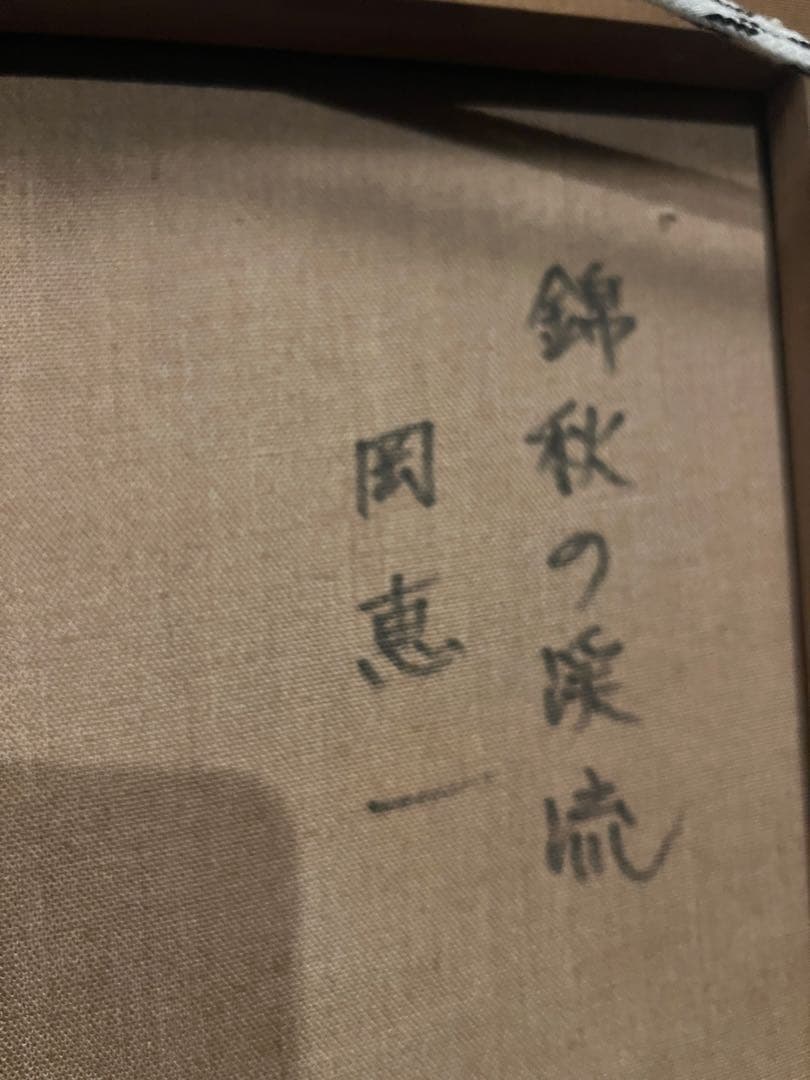 錦秋の渓流
岡恵一